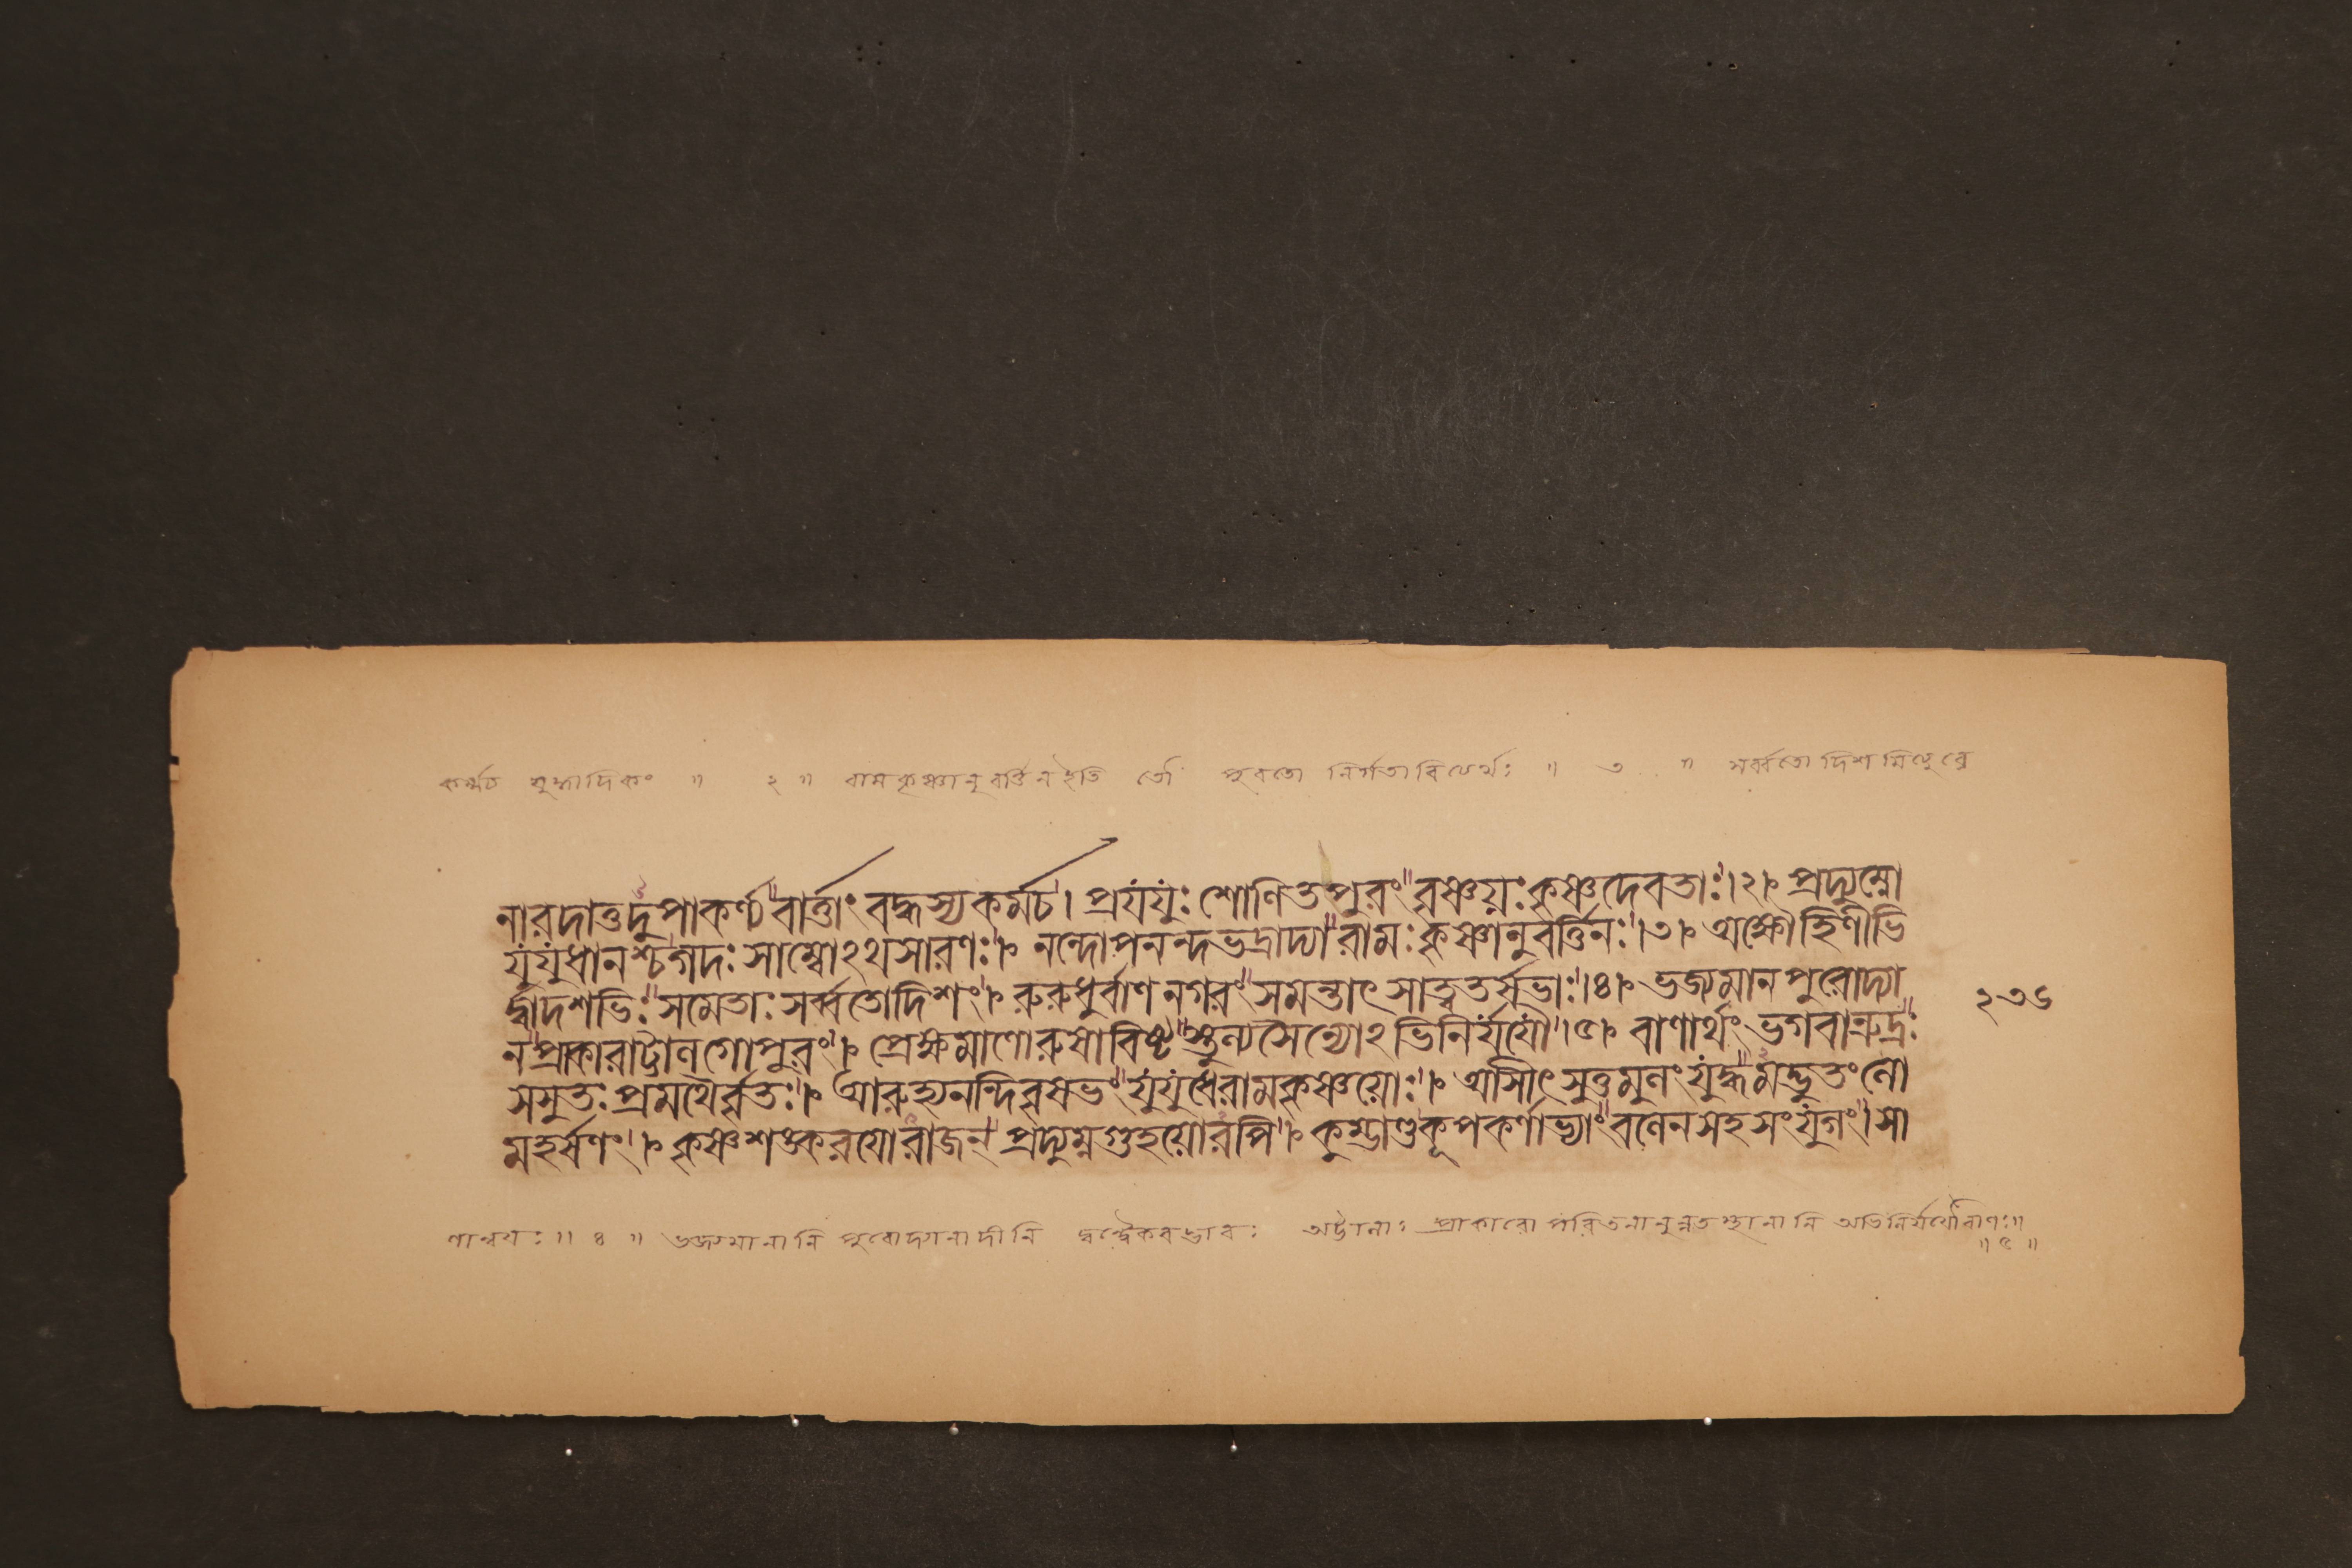 কর্ম্মচ যুদ্ধাদিকং ॥ ২ ॥ রামকৃষ্ণানুবর্ত্তিন ইতি তৌ পুরতো নির্গতাবিত্যর্থঃ ॥ ৩ ॥ সর্ব্বতো দিশমিত্যুত্তরে
নারদাত্তদুপাকর্ণ্য বার্ত্তাং বদ্ধস্য কর্মচ। প্রযযুঃ শোণিতপুরং বৃষ্ণয়ঃ কৃষ্ণদেবতাঃ।২। প্রদ্যুম্নো
যুযুধানশ্চ গদঃ সাম্বোঽথ সারণঃ। নন্দোপনন্দভদ্রাদ্যা রামঃকৃষ্ণানুবর্ত্তিনঃ।৩। অক্ষৌহিণীভি
র্দ্বাদশভিঃ সমেতাঃ সর্ব্বতোদিশং। রুরুধুর্বাণনগরং সমন্তাৎ সাত্বতর্ষভাঃ।৪। ভজ্যমানপুরোদ্যা
নপ্রাকারাট্টালগোপুরং। প্রেক্ষমাণোরুষাবিষ্ট স্তুল্যসৈন্যোঽভিনির্যযৌ।৫। বাণার্থং ভগবান্রুদ্রঃ
সসুতঃ প্রমথৈর্বৃতঃ। আরুহ্য নন্দিবৃষভং যুযুধে রামকৃষ্ণয়োঃ। আসীৎ সুতুমুলং যুদ্ধমদ্ভুতং লো
মহর্ষণং। কৃষ্ণশঙ্করযোরাজন্ প্রদ্যুম্নগুহয়োরপি। কুম্ভাণ্ডকূপকর্ণাভ্যাং বলেন সহ সংযুগং। সা
২৩৬
ণান্বযঃ ॥ ৪ ॥ ভজ্যমানানি পুরোদ্যানাদীনি দ্বন্দ্বৈকবদ্ভাবঃ অট্টালাঃ প্রাকারোপরিতনান্যুন্নতস্থানানি অভিনির্যযৌ বাণঃ॥
॥ ৫ ॥